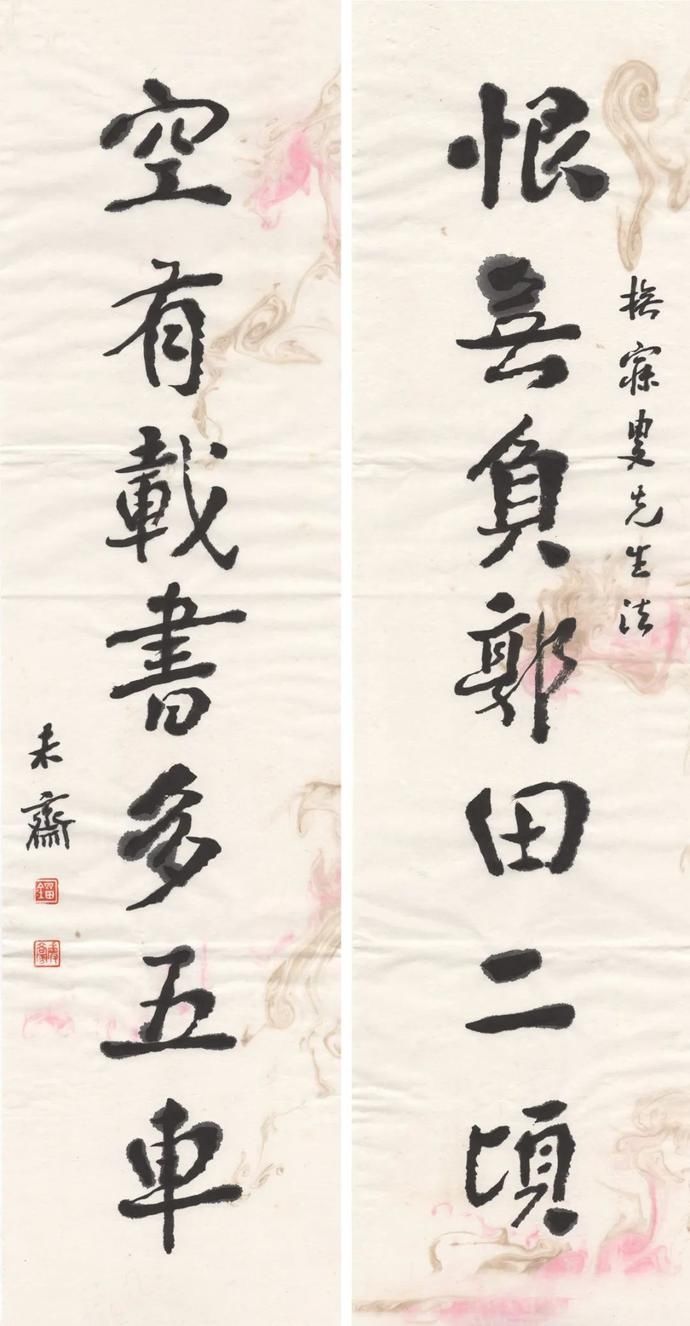 撫寐叟先生法
恨無負郭田二頃
空有載書多五車
未齋